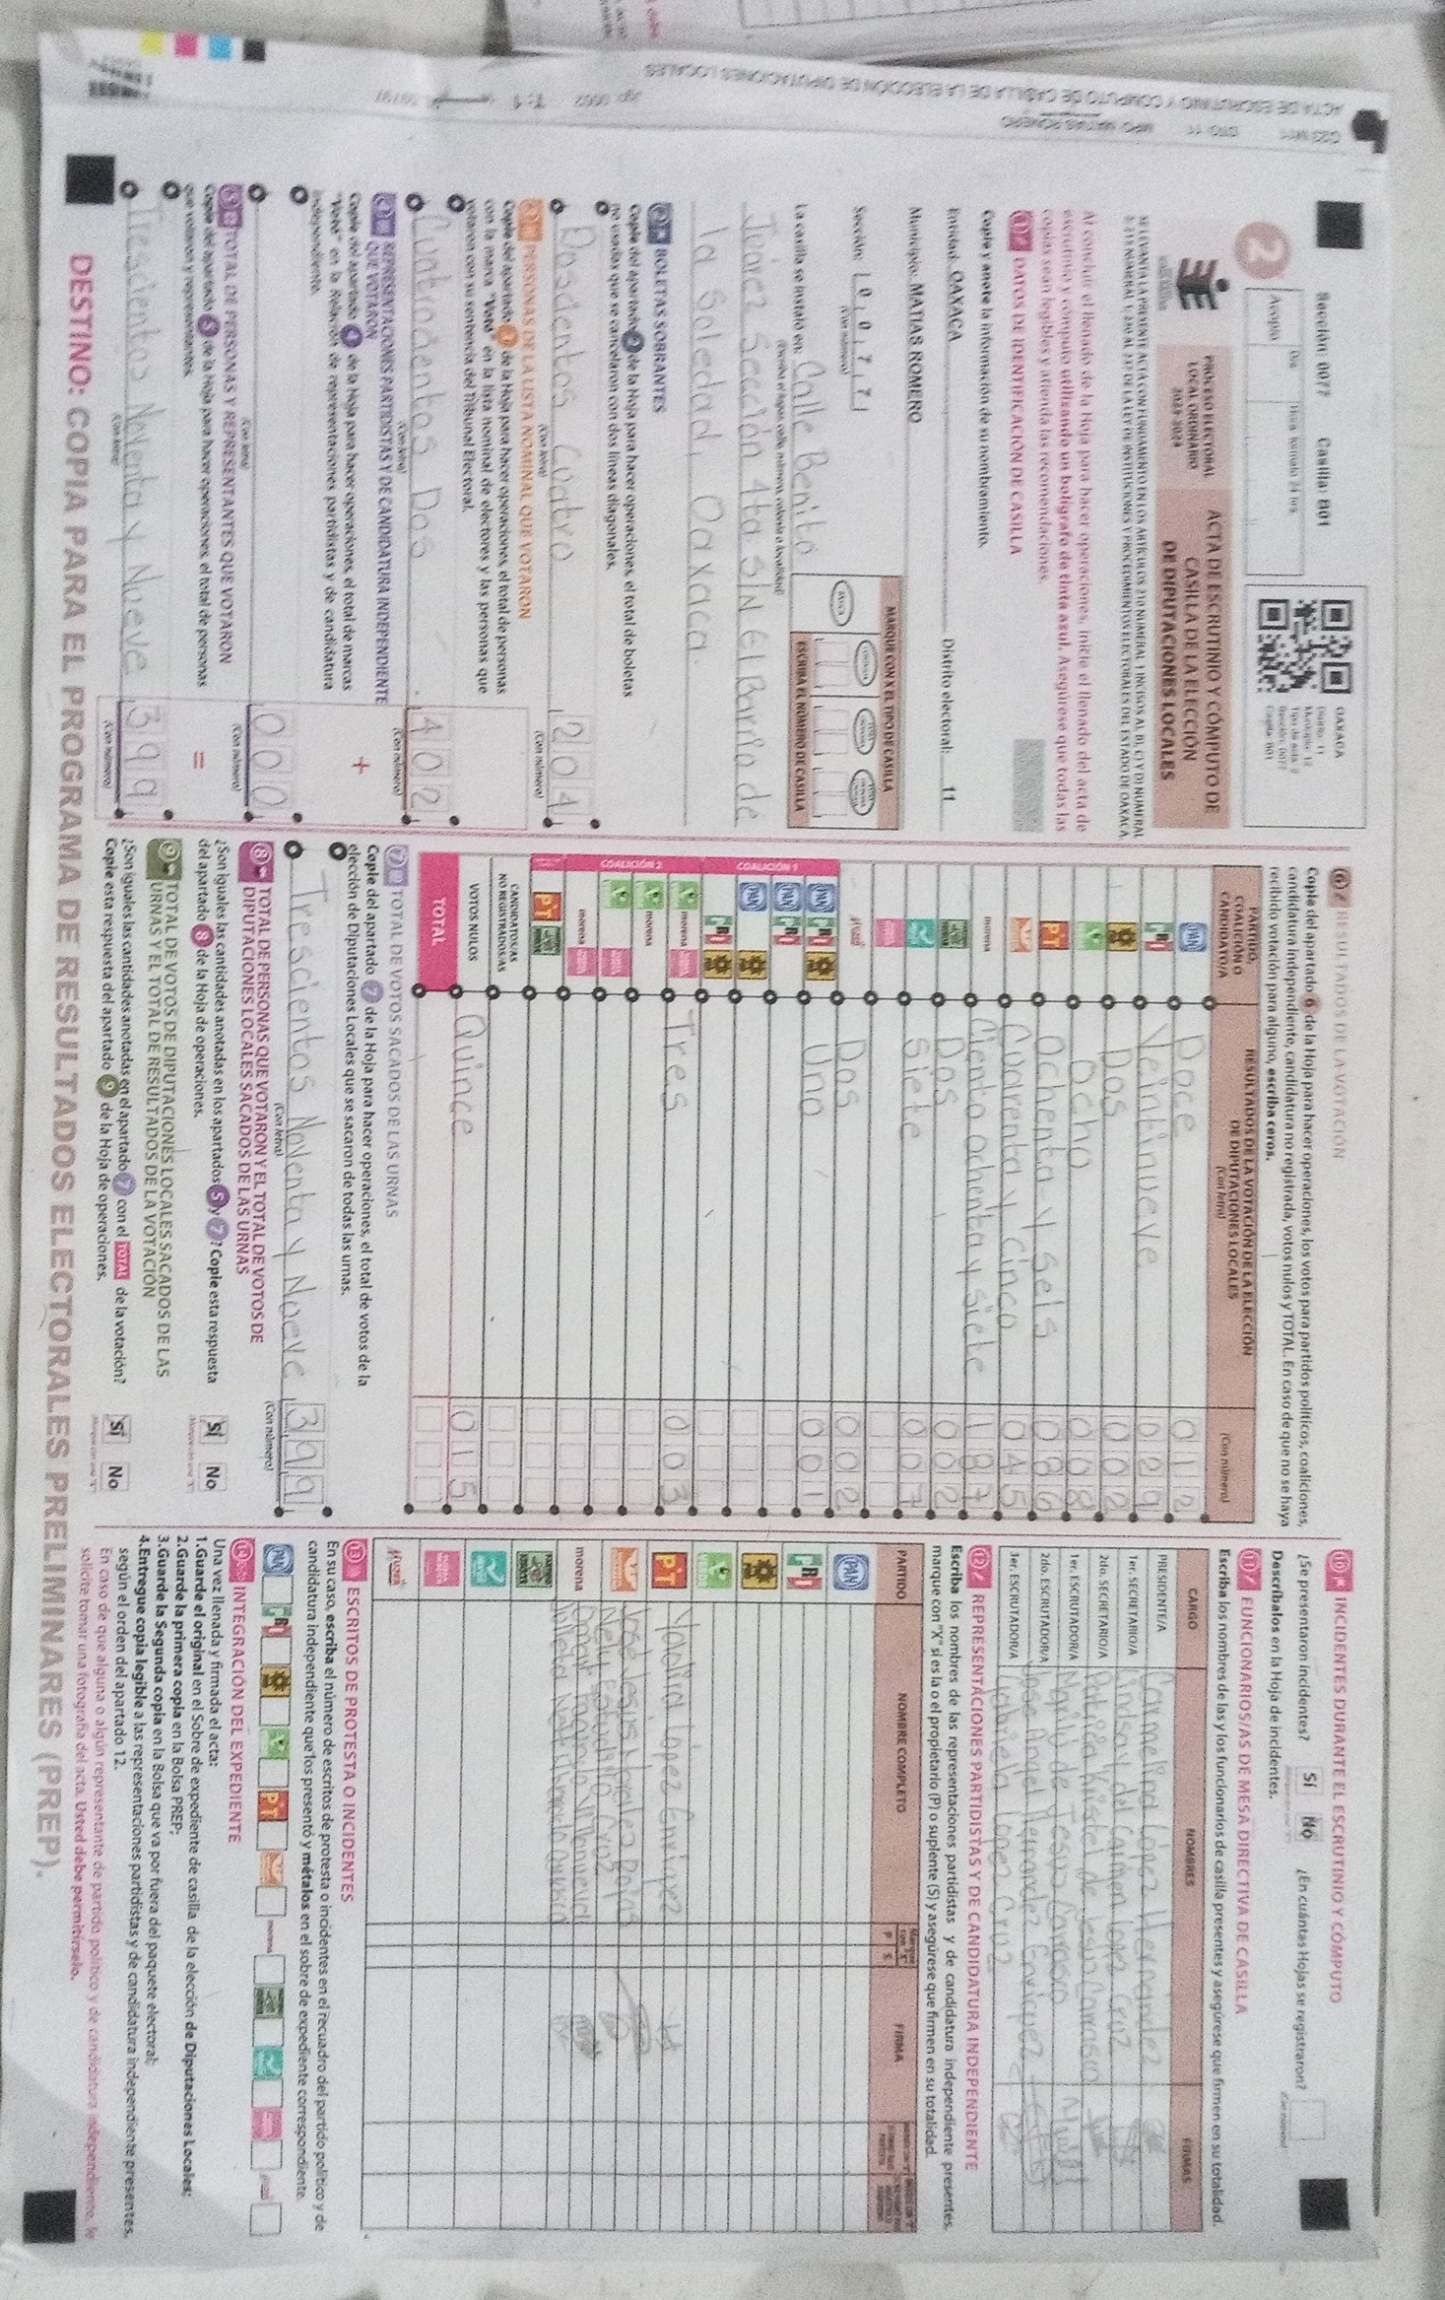 Sección: 0077 Casilla: B01
OAXACA
Distrito: 11
Acopio
Día
Hora formato 24 hrs
2
PROCESO ELECTORAL
LOCAL ORDINARIO
2023-2024
ACTA DE ESCRUTINIO Y CÓMPUTO DE
CASILLA DE LA ELECCIÓN
DE DIPUTACIONES LOCALES
Al concluir el llenado de la Hoja para hacer operaciones, inicie el llenado del acta de
escrutinio y cómputo utilizando un bolígrafo de tinta azul. Asegúrese que todas las
copias sean legibles y atienda las recomendaciones.
1 DATOS DE IDENTIFICACIÓN DE CASILLA
Copie y anote la información de su nombramiento.
Entidad: OAXACA Distrito electoral: 11
Municipio: MATIAS ROMERO
Sección: 0077
(Con número)
MARQUE CON X EL TIPO DE CASILLA
BÁSICA
ESCRIBA EL NÚMERO DE CASILLA
La casilla se instaló en: Calle Benito
Juárez Sección 4ta S/N El Barrio de
la Soledad, Oaxaca.
2 BOLETAS SOBRANTES
Copie del apartado 2 de la Hoja para hacer operaciones, el total de boletas
no usadas que se cancelaron con dos líneas diagonales.
Doscientos Cuatro 204
(Con letra) (Con número)
3 PERSONAS DE LA LISTA NOMINAL QUE VOTARON
Copie del apartado 3 de la Hoja para hacer operaciones, el total de personas
con la marca "Votó" en la lista nominal de electores y las personas que
votaron con su sentencia del Tribunal Electoral.
Cuatrocientos Dos 402
(Con letra) (Con número)
4 REPRESENTACIONES PARTIDISTAS Y DE CANDIDATURA INDEPENDIENTE
QUE VOTARON
Copie del apartado 4 de la Hoja para hacer operaciones, el total de marcas
"Votó" en la Relación de representaciones partidistas y de candidatura
independiente.
+
000
(Con letra) (Con número)
5 TOTAL DE PERSONAS Y REPRESENTANTES QUE VOTARON
Copie del apartado 5 de la Hoja para hacer operaciones, el total de personas
que votaron y representantes.
=
Trescientos Noventa y Nueve 399
(Con letra) (Con número)
6 RESULTADOS DE LA VOTACIÓN
Copie del apartado 6 de la Hoja para hacer operaciones, los votos para partidos políticos, coaliciones,
candidatura independiente, candidatura no registrada, votos nulos y TOTAL. En caso de que no se haya
recibido votación para alguno, escriba ceros.
PARTIDO,
COALICIÓN O
CANDIDATO/A
RESULTADOS DE LA VOTACIÓN DE LA ELECCIÓN
DE DIPUTACIONES LOCALES
(Con letra)
(Con número)
PAN Doce 012
PRI Veintinueve 029
PRD Dos 002
Ocho 008
PT Ochenta y Seis 086
Cuarenta y cinco 045
morena Ciento ochenta y siete 187
Dos 002
Siete 007
Dos 002
COALICIÓN 1
PAN PRI PRD Uno 001
PAN PRI
PAN PRD
PRI PRD
COALICIÓN 2
morena Tres 003
morena
morena
PT
CANDIDATOS/AS
NO REGISTRADOS/AS
VOTOS NULOS Quince 015
TOTAL
7 TOTAL DE VOTOS SACADOS DE LAS URNAS
Copie del apartado 7 de la Hoja para hacer operaciones, el total de votos de la
elección de Diputaciones Locales que se sacaron de todas las urnas.
Trescientos Noventa y Nueve 399
(Con letra) (Con número)
8 TOTAL DE PERSONAS QUE VOTARON Y EL TOTAL DE VOTOS DE
DIPUTACIONES LOCALES SACADOS DE LAS URNAS
¿Son iguales las cantidades anotadas en los apartados 5 y 7? Copie esta respuesta
del apartado 8 de la Hoja de operaciones.
Sí No
9 TOTAL DE VOTOS DE DIPUTACIONES LOCALES SACADOS DE LAS
URNAS Y EL TOTAL DE RESULTADOS DE LA VOTACIÓN
¿Son iguales las cantidades anotadas en el apartado 7 con el TOTAL de la votación?
Copie esta respuesta del apartado 9 de la Hoja de operaciones.
Sí No
10 INCIDENTES DURANTE EL ESCRUTINIO Y CÓMPUTO
¿Se presentaron incidentes? Sí No ¿En cuántas Hojas se registraron?
Descríbalos en la Hoja de incidentes.
11 FUNCIONARIOS/AS DE MESA DIRECTIVA DE CASILLA
Escriba los nombres de las y los funcionarios de casilla presentes y asegúrese que firmen en su totalidad.
CARGO NOMBRES FIRMAS
PRESIDENTE/A Carmelina López Hernández
1er. SECRETARIO/A Lindsay del Carmen López Cruz
2do. SECRETARIO/A Patricia Kristel de Jesús Carrasco
1er. ESCRUTADOR/A Marilú de Jesús Carrasco
2do. ESCRUTADOR/A Jose Angel Hernandez Enriquez
3er. ESCRUTADOR/A Gabriela Lopez Cruz
12 REPRESENTACIONES PARTIDISTAS Y DE CANDIDATURA INDEPENDIENTE
Escriba los nombres de las representaciones partidistas y de candidatura independiente presentes,
marque con "X" si es la o el propietario (P) o suplente (S) y asegúrese que firmen en su totalidad.
PARTIDO NOMBRE COMPLETO P S FIRMA
PAN
PRI
PRD
PT Yadira López Enriquez
morena
13 ESCRITOS DE PROTESTA O INCIDENTES
En su caso, escriba el número de escritos de protesta o incidentes en el recuadro del partido político y de
candidatura independiente que los presentó y métalos en el sobre de expediente correspondiente.
14 INTEGRACIÓN DEL EXPEDIENTE
Una vez llenada y firmada el acta:
1.Guarde el original en el Sobre de expediente de casilla de la elección de Diputaciones Locales;
2.Guarde la primera copia en la Bolsa PREP;
3.Guarde la Segunda copia en la Bolsa que va por fuera del paquete electoral;
4.Entregue copia legible a las representaciones partidistas y de candidatura independiente presentes,
según el orden del apartado 12.
En caso de que alguna o algún representante de partido político y de candidatura independiente, le
solicite tomar una fotografía del acta. Usted debe permitírselo.
DESTINO: COPIA PARA EL PROGRAMA DE RESULTADOS ELECTORALES PRELIMINARES (PREP).
ACTA DE ESCRUTINIO Y COMPUTO DE CASILLA DE LA ELECCIÓN DE DIPUTACIONES LOCALES
DTO: 11 MPO: MATIAS ROMERO